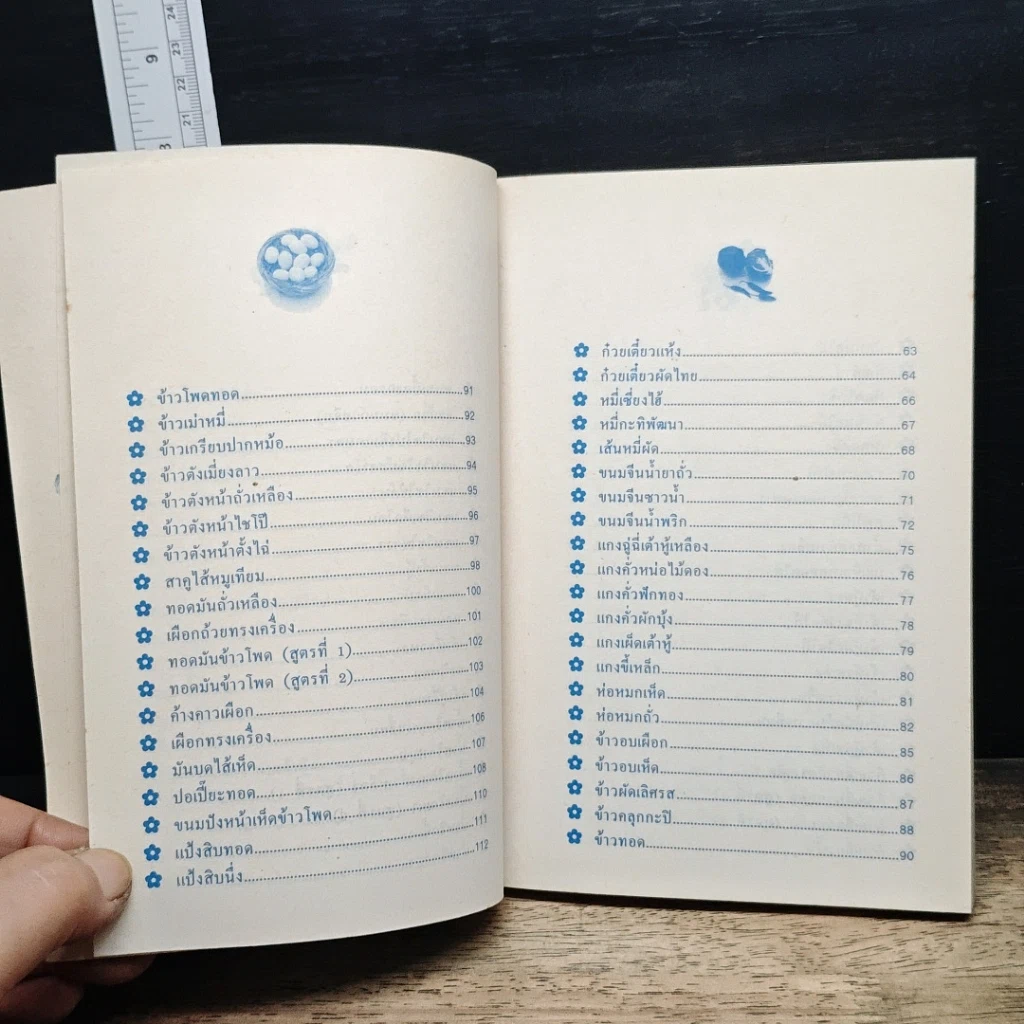 9
24
23
22
21
8
ข้าวโพดทอด 91
ข้าวเม่าหมี่ 92
ข้าวเกรียบปากหม้อ 93
ข้าวตังเมี่ยงลาว 94
ข้าวตังหน้าถั่วเหลือง 95
ข้าวตังหน้าไชโป๊ 96
ข้าวตังหน้าตั้งไฉ่ 97
สาคูไส้หมูเทียม 98
ทอดมันถั่วเหลือง 100
เผือกถ้วยทรงเครื่อง 101
ทอดมันข้าวโพด (สูตรที่ 1) 102
ทอดมันข้าวโพด (สูตรที่ 2) 103
ค้างคาวเผือก 104
เผือกทรงเครื่อง 106
มันบดไส้เห็ด 107
ปอเปี๊ยะทอด 108
ขนมปังหน้าเห็ดข้าวโพด 110
แป้งสิบทอด 111
แป้งสิบนึ่ง 112
ก๋วยเตี๋ยวแห้ง 63
ก๋วยเตี๋ยวผัดไทย 64
หมี่เซี่ยงไฮ้ 66
หมี่กะทิพัฒนา 67
เส้นหมี่ผัด 68
ขนมจีนน้ำยาถั่ว 70
ขนมจีนซาวน้ำ 71
ขนมจีนน้ำพริก 72
แกงฉู่ฉี่เต้าหู้เหลือง 75
แกงคั่วหน่อไม้ดอง 76
แกงคั่วฟักทอง 77
แกงคั่วผักบุ้ง 78
แกงเผ็ดเต้าหู้ 79
แกงขี้เหล็ก 80
ห่อหมกเห็ด 81
ห่อหมกถั่ว 82
ข้าวอบเผือก 85
ข้าวอบเห็ด 86
ข้าวผัดเลิศรส 87
ข้าวคลุกกะปิ 88
ข้าวทอด 90